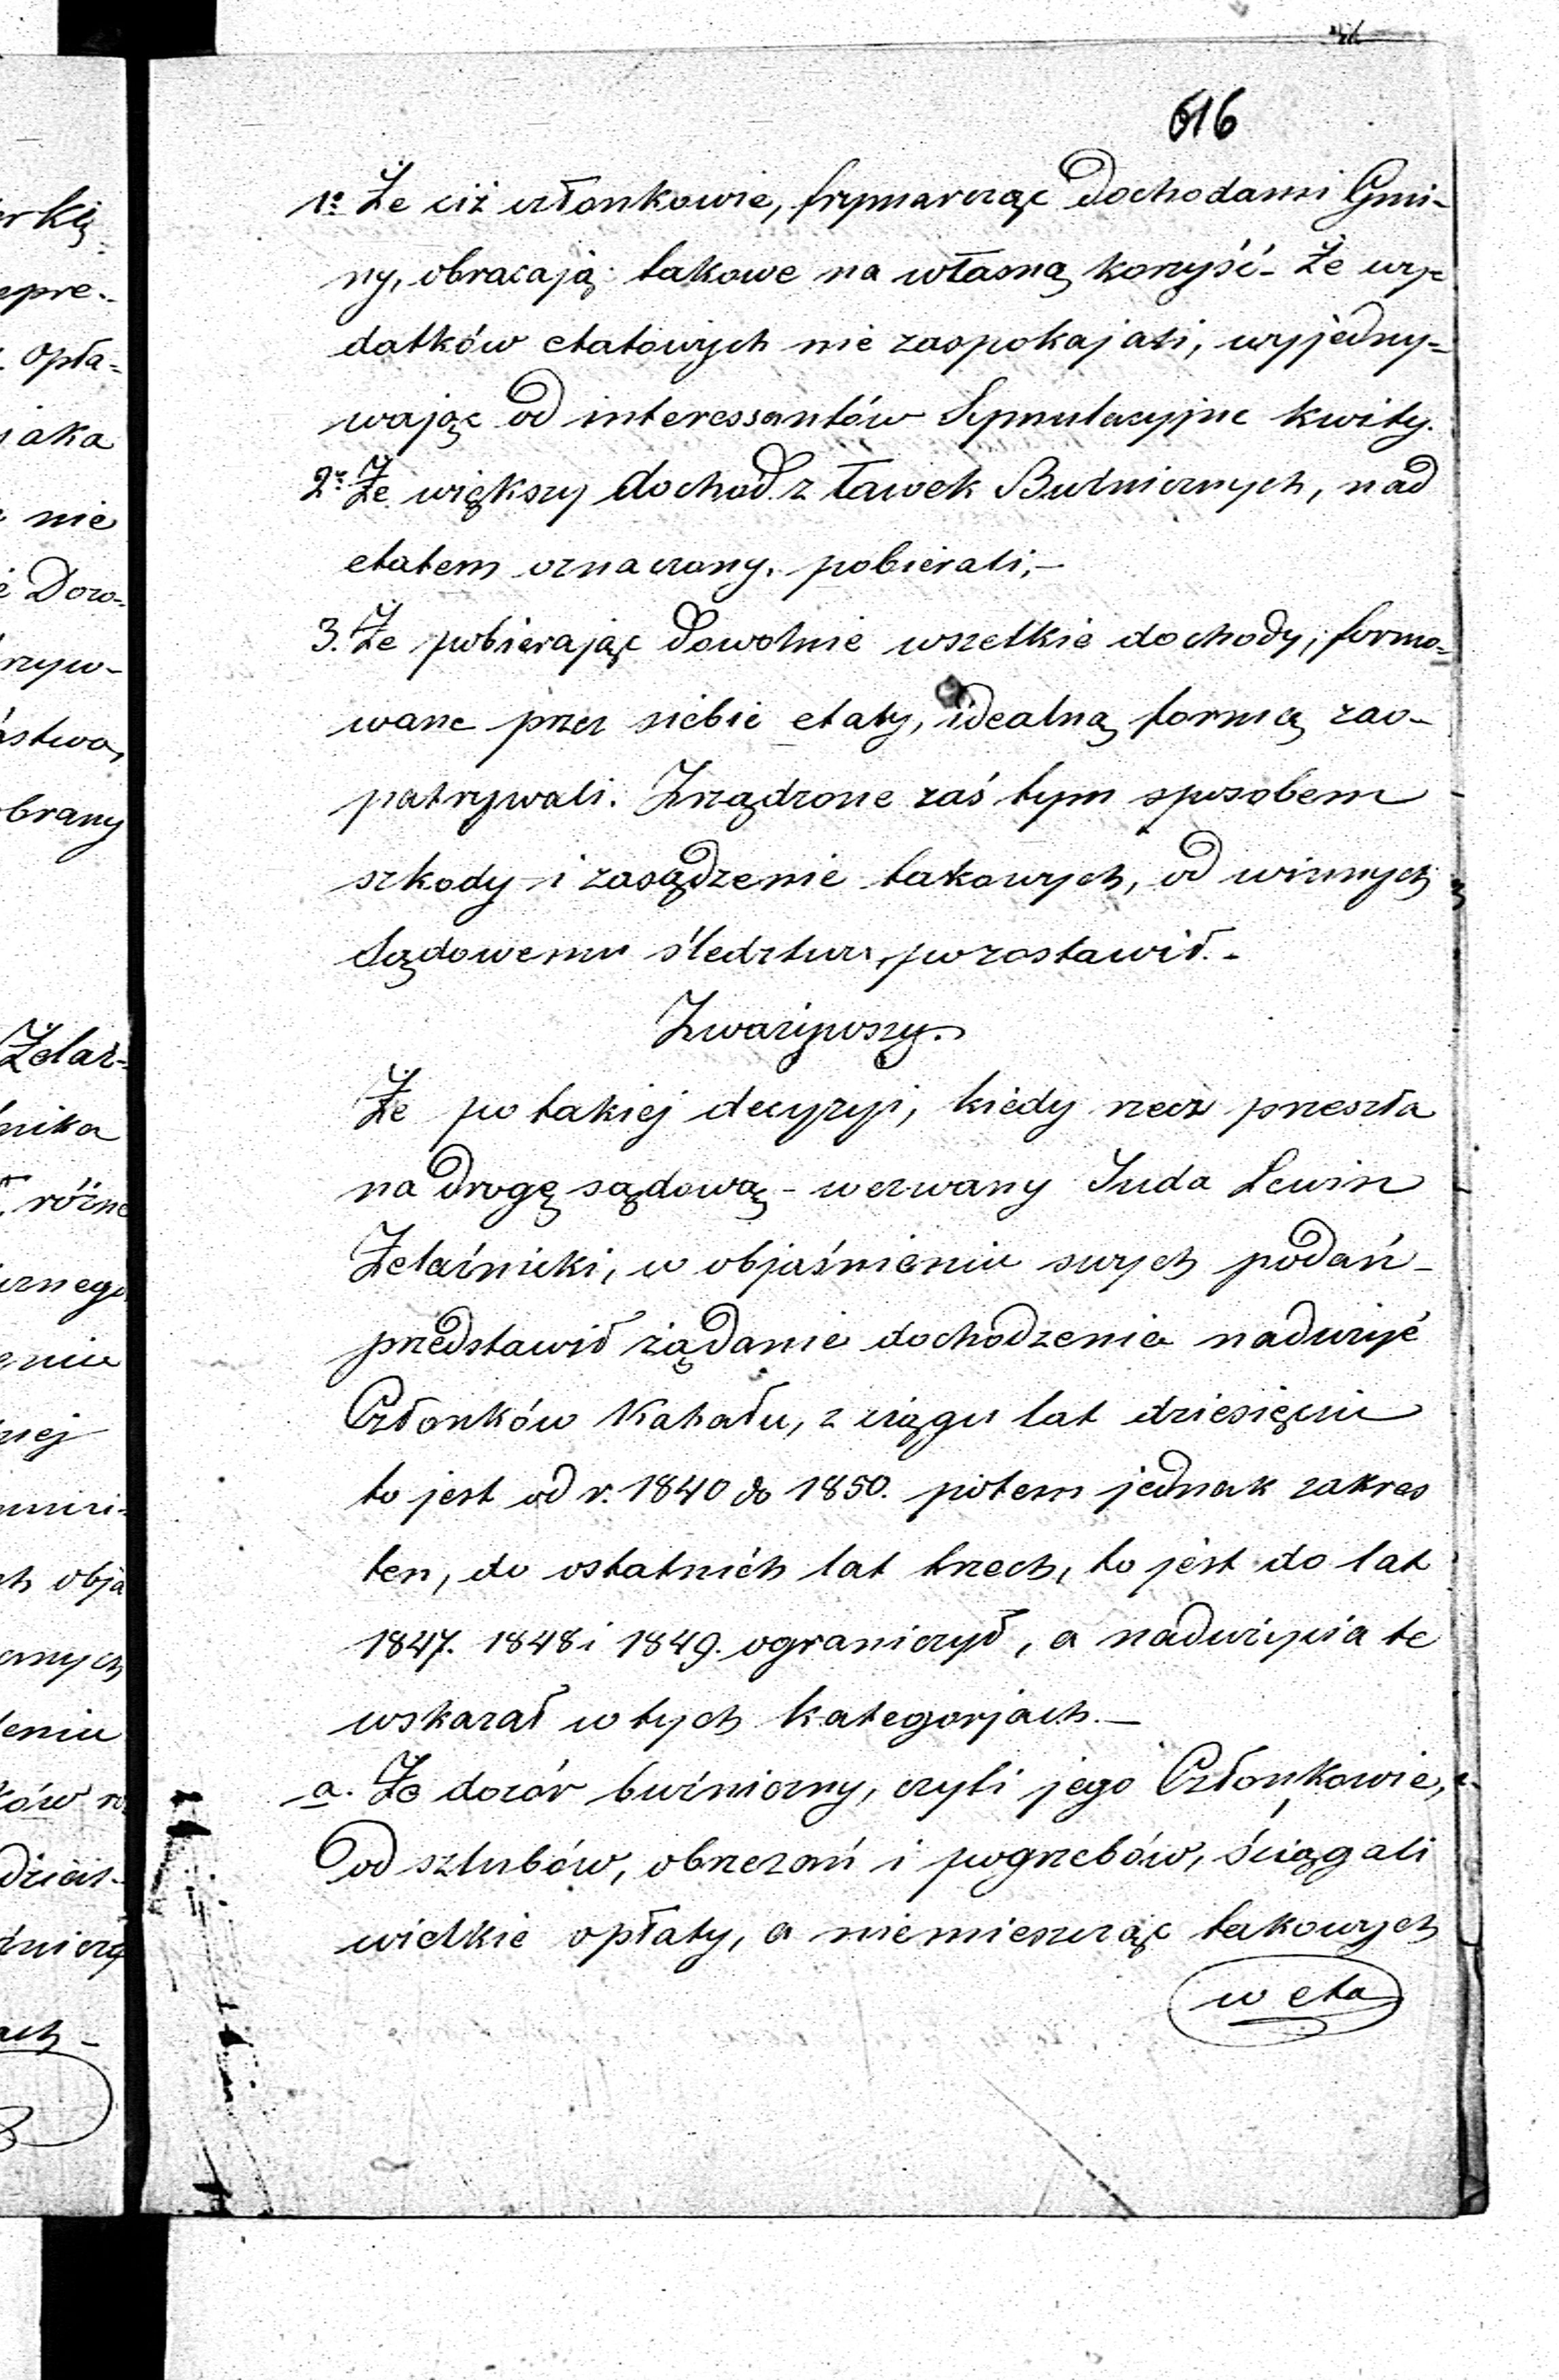 616
1º Że ciż członkowie, frymarcząc dochodami Gmi-
ny, obracają takowe na własną korzyść - Że wy-
datków etatowych nie zaspokajali, wyjedny-
wając od interessantów Symulacyjne kwity.
2º Że większy dochód z ławek Bużnicznych, nad
etatem oznaczony, pobierali,-
3. Że pobierając dowolnie wszelkie dochody, formo-
wane przez siebie etaty, idealną formą zao-
patrywali. Zrządzone zaś tym sposobem
szkody i zasądzenie takowych, od winnych
Sądowemu śledztwu, pozostawił.-
Zważywszy.
Że po takiej decyzyi, kiedy rzecz przeszła
na drogę sądową - wezwany Juda Lewin
Żelaźnicki, w objaśnieniu swych podań -
przedstawił żądanie dochodzenia nadużyć
Członków Kahału, z ciągu lat dziesięciu
to jest od r. 1840 do 1850. potem jednak zakres
ten, do ostatnich lat trzech, to jest do lat
1847. 1848 i 1849. ograniczył, a nadużycia te
wskazał w tych kategorjach.-
a. Że dozór bużniczny, czyli jego Członkowie,
od szlubów, obrzezań i pogrzebów, ściągali
wielkie opłaty, a niemieszcząc takowych
w eta
erką
opła-
jaka
nie
Dozo-
brany
Żelaź-
nika
różne
nego
eniu
nej
obja